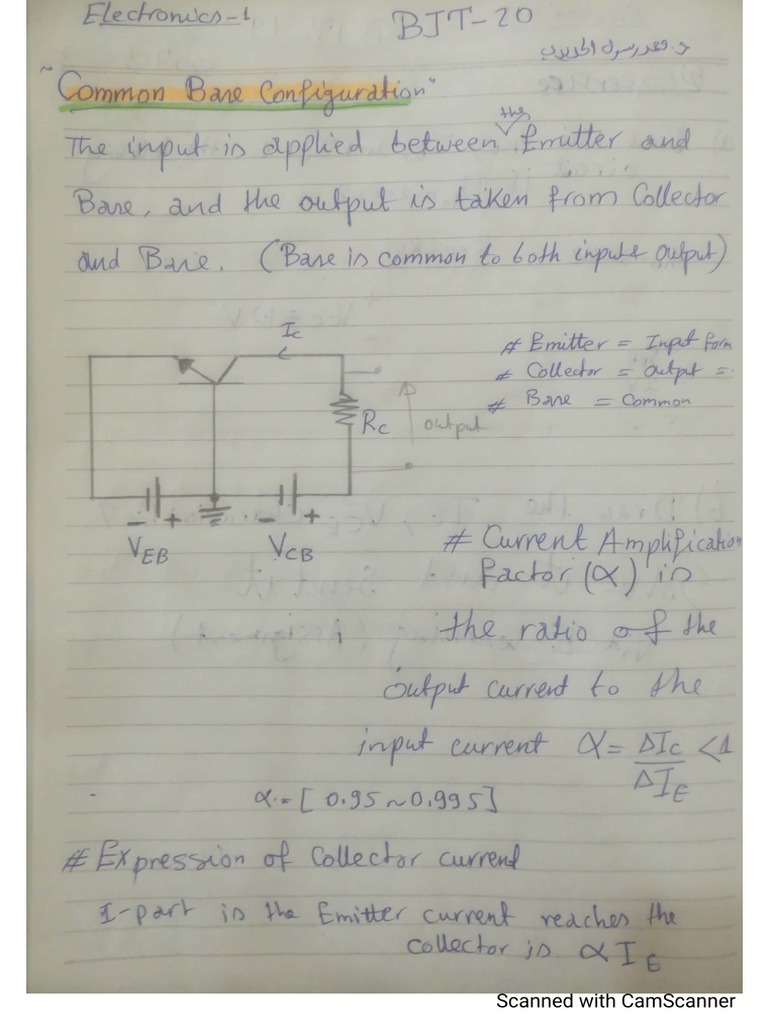 Electronics-1
BJT-20
"Common Base Configuration"
the
The input is applied between Emitter and
Base, and the output is taken from Collector
and Base. (Base is common to both input & output)
Ic
# Emitter = Input form
# Collector = output =
# Base = Common
Rc
output
- +
- +
VEB
VCB
# Current Amplification
factor (α) is
the ratio of the
output current to the
input current α = ΔIc / ΔIE < 1
α = [0.95 ~ 0.995]
# Expression of Collector current
I-part is the Emitter current reaches the
collector is α IE
Scanned with CamScanner